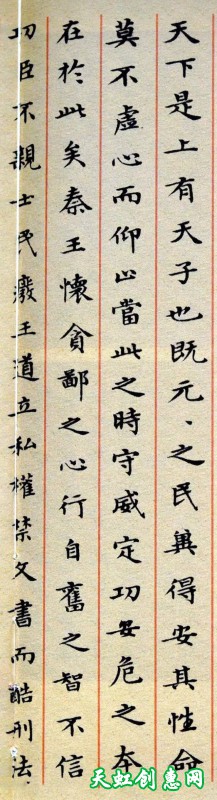 天下是上有天子也既元、之民冀得安其性命
莫不虛心而仰上當此之時守威定功安危之本
在於此矣秦王懷貪鄙之心行自奮之智不信
功臣不親士民廢王道立私權禁文書而酷刑法、
天虹创惠网